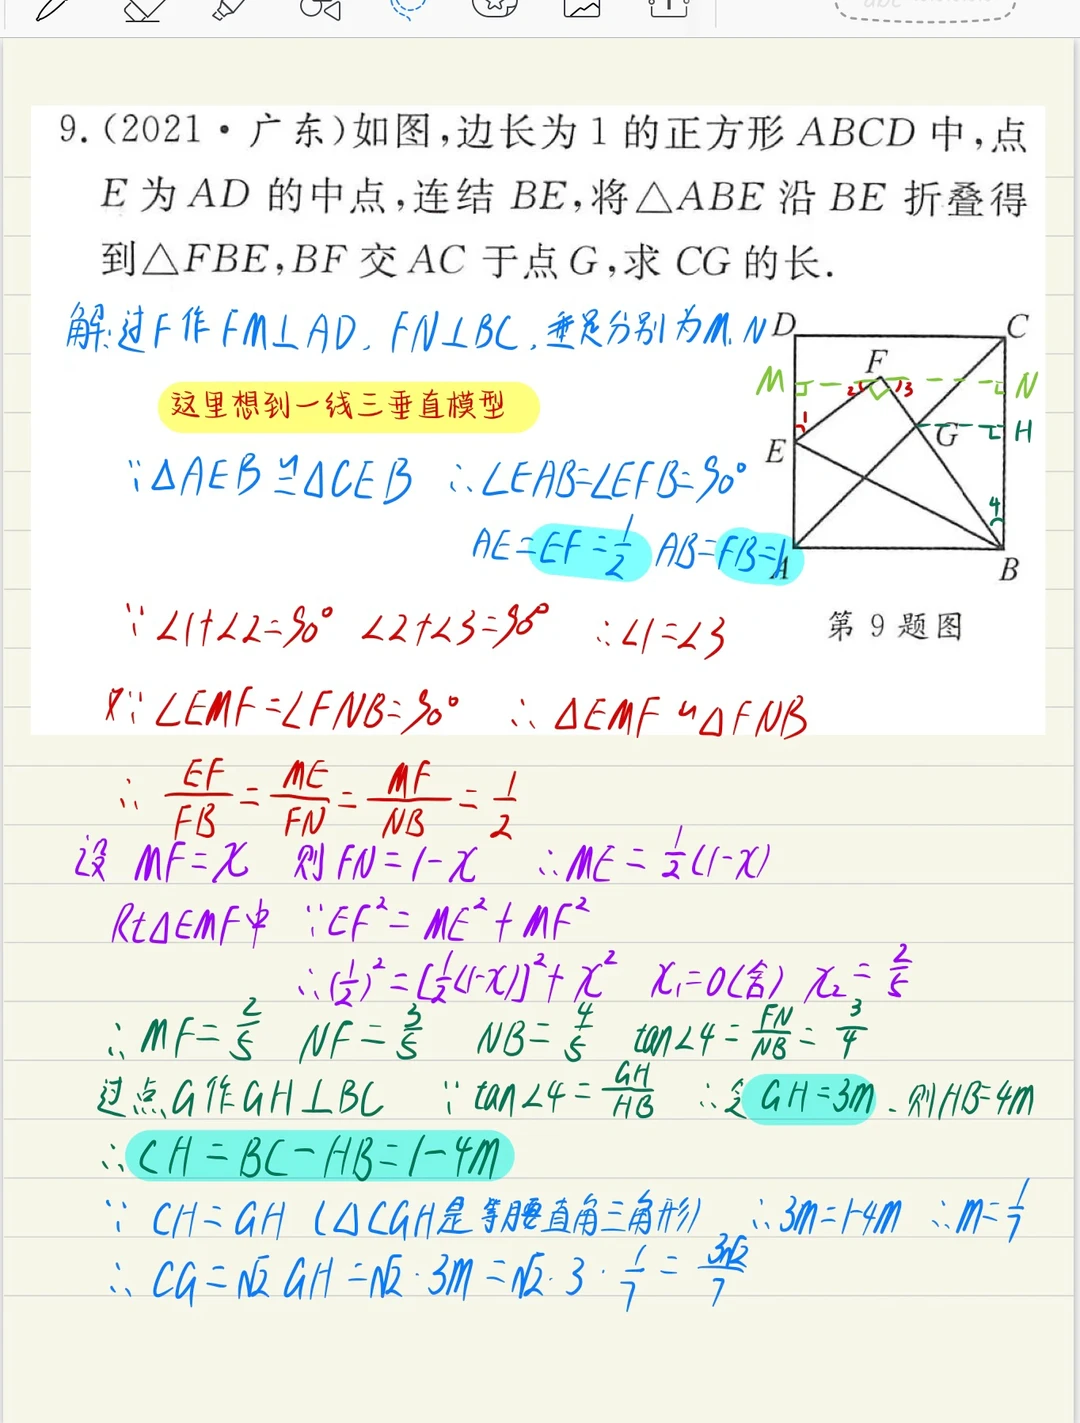 9.(2021·广东)如图,边长为1的正方形ABCD中,点
E为AD的中点,连结BE,将△ABE沿BE折叠得
到△FBE,BF交AC于点G,求CG的长.
解:过F作FM⊥AD,FN⊥BC,垂足分别为M、N
这里想到一线三垂直模型
∵△AEB≌△CEB ∴∠EAB=∠EFB=90°
AE=EF=1/2 AB=FB=1
D
C
F
M
2
3
N
1
G
H
E
4
A
B
第9题图
∵∠1+∠2=90° ∠2+∠3=90° ∴∠1=∠3
又∵∠EMF=∠FNB=90° ∴△EMF∽△FNB
∴ EF/FB=ME/FN=MF/NB=1/2
设 MF=x 则FN=1-x ∴ME=1/2(1-x)
Rt△EMF中 ∵EF²=ME²+MF²
∴(1/2)²=[1/2(1-x)]²+x² x₁=0(舍) x₂=2/5
∴MF=2/5 NF=3/5 NB=4/5 tan∠4=FN/NB=3/4
过点G作GH⊥BC ∵tan∠4=GH/HB ∴令GH=3m、则HB=4m
∴CH=BC-HB=1-4m
∵ CH=GH(△CGH是等腰直角三角形) ∴3m=1-4m ∴m=1/7
∴ CG=√2 GH=√2·3m=√2·3·1/7=3√2/7